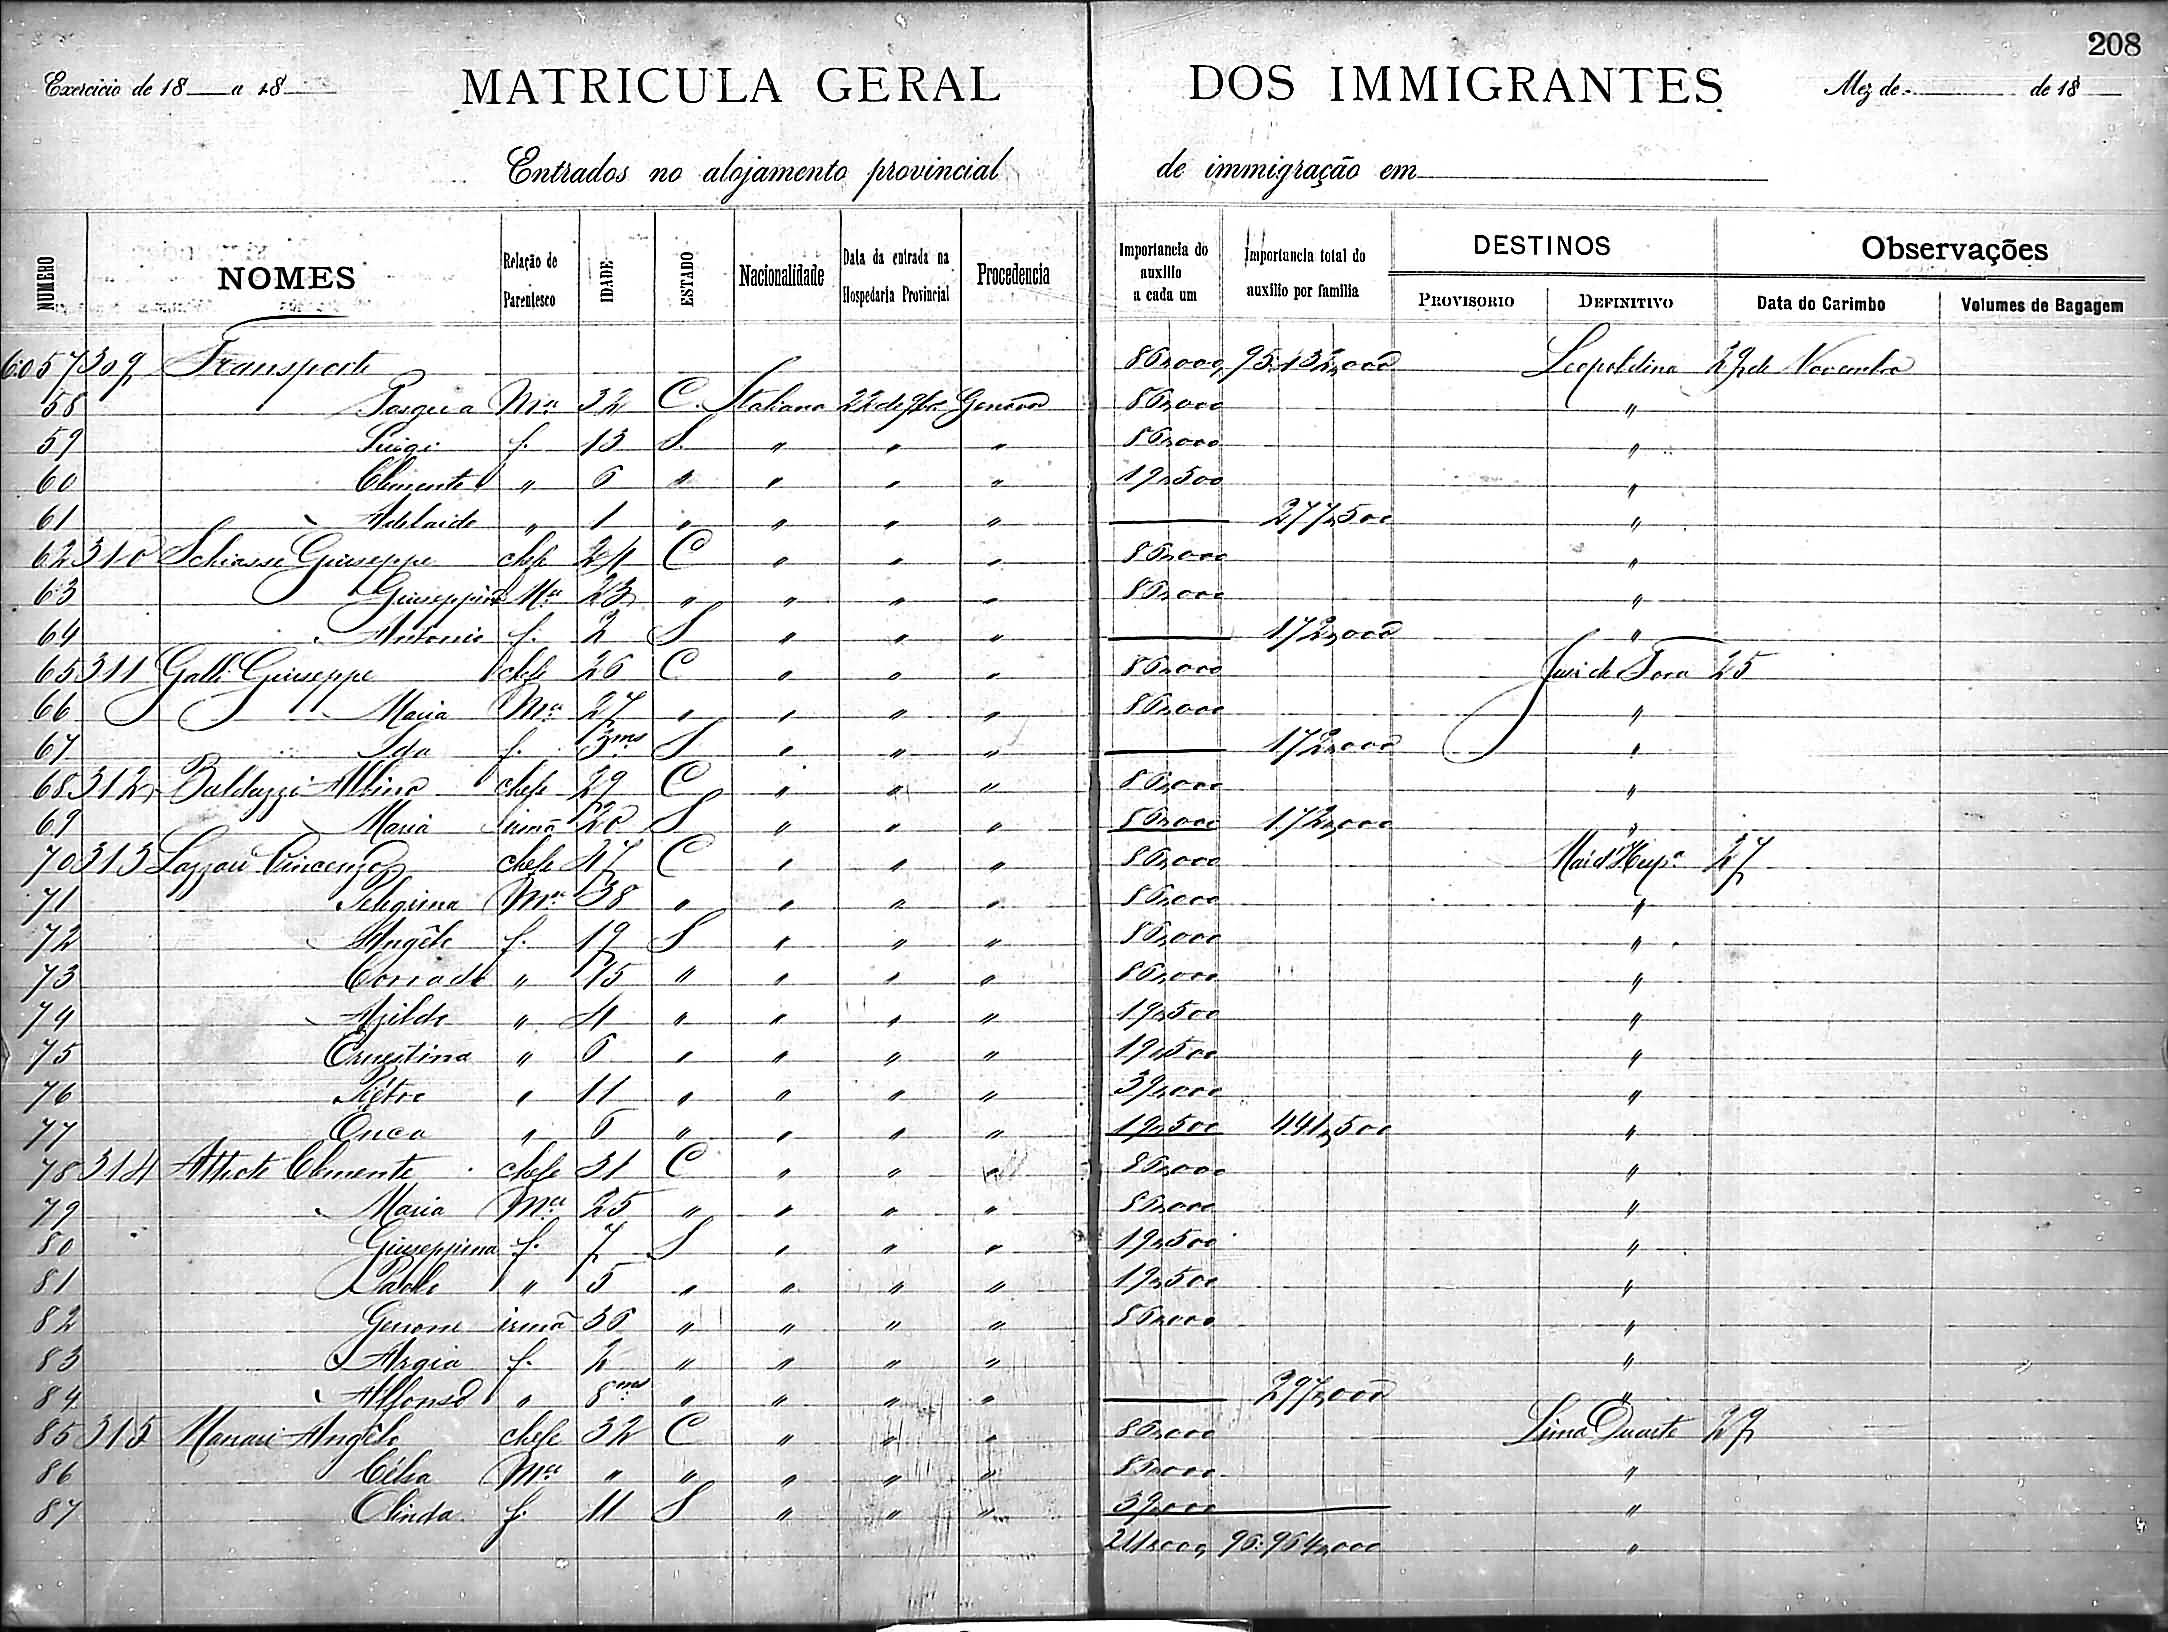 208
Exercicio de 18 a 18 MATRICULA GERAL DOS IMMIGRANTES Mez de de 18
Entrados no alojamento provincial de immigração em
NUMERO NOMES Relação de Parentesco IDADE ESTADO Nacionalidade Data da entrada na Hospedaria Provincial Procedencia Importancia do auxilio a cada um Importancia total do auxilio por familia DESTINOS PROVISORIO DEFINITIVO Observações Data do Carimbo Volumes de Bagagem
6057 309 Transporte 86,000, 95:132,000 Leopoldina 29 de Novembro
58 Pasqua Mer 32 C. Italiana 22 de 9bro Genova 86,000 "
59 Luigi f. 13 S. " " " 86,000 "
60 Clemente " 6 " " " " 19,500 "
61 Adelaide " 1 " " " " 277,500 "
62 310 Schiassi Giuseppe chefe 24 C " " " 86,000 "
63 Giuseppina Mer 23 " " " " 86,000 "
64 Antonio f. 2 S " " " 172,000 "
65 311 Galli Giuseppe chefe 26 C " " " 86,000 Juiz de Fora 25
66 Maria Mer 27 " " " " 86,000 "
67 Ida f. 3ms S " " " 172,000 "
68 312 Balduzzi Albino chefe 29 C " " " 86,000 "
69 Maria irmã 20 S " " " 86,000 172,000 "
70 313 Lazzari Vincenzo chefe 47 C " " " 86,000 Mar d'Hespa 27
71 Pelegrina Mer 38 " " " " 86,000 "
72 Angelo f. 19 S " " " 86,000 "
73 Corrado " 15 " " " " 86,000 "
74 " 4 " " " " 19,500 "
75 Ernestina " 6 " " " " 19,500 "
76 Piétro " 11 " " " " 39,000 "
77 " 6 " " " " 19,500 441,500 "
78 314 Clemente chefe 31 C " " " 86,000 "
79 Maria Mer 25 " " " " 86,000 "
80 Giuseppina f. 7 S " " " 19,500 "
81 Paolo " 5 " " " " 19,500 "
82 irmã 36 " " " " 86,000 "
83 Argia f. 2 " " " " "
84 Alfonso " 8ms " " " " 297,000 "
85 315 Angelo chefe 32 C " " " 86,000 Lima Duarte 29
86 Célia Mer " " " " " 86,000 "
87 Olinda f. 11 S " " " 39,000 "
211,000, 96:964,000 "